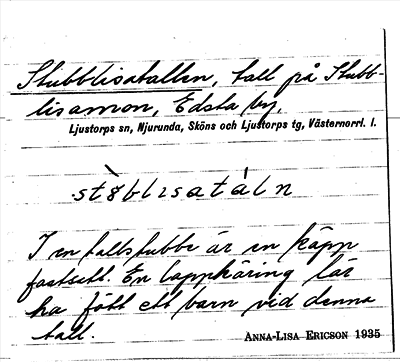 Stubblisatallen, tall på Stubb-
lisamon, Edsta by.
Ljustorps sn, Njurunda, Sköns och Ljustorps tg, Västernorrl. l.
stȣ̀bblɪsatáln
I en tallstubbe är en käpp
fastsatt. En lappkäring lär
ha fött ett barn vid denna
tall.
ANNA-LISA ERICSON 1935